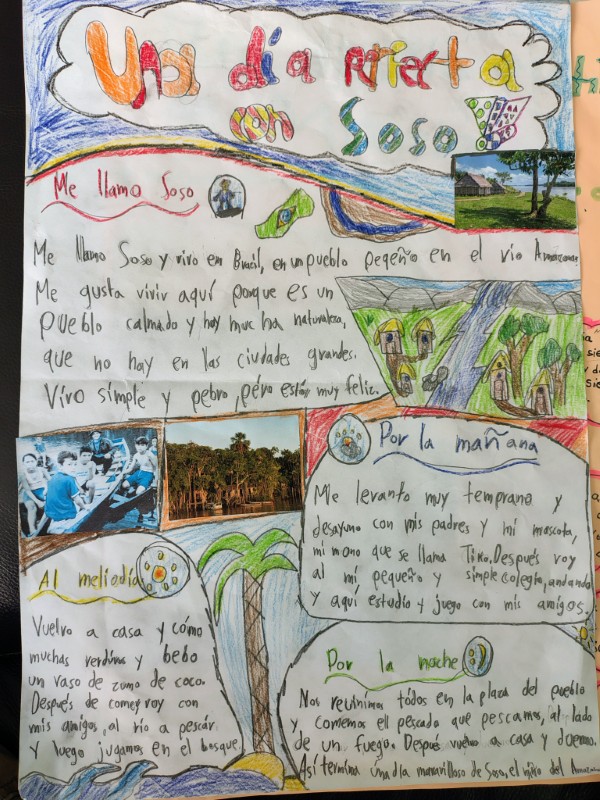 Una día perfecta
con Soso
Me llamo Soso
Me llamo Soso y vivo em Brasil, en un pueblo peqeño en el rio Amazonas
Me gusta vivir aquí porque es un
pueblo calmado y hay mucha naturaleza,
que no hay en las ciudades grandes.
Vivo simple y pobro, pero estoy muy feliz.
Por la mañana
Me levanto muy temprano y
desayuno con mis padres y mi mascota,
mi mono que se llama Tiko. Después voy
al mi pequeño y simple colegio, andando
y aquí estudio y juego con mis amigos.
Al meliodía
Vuelvo a casa y cómo
muchas verduras y bebo
un vaso de zumo de coco.
Después de comer voy con
mis amigos, al río a pescár
y luego jugamos en el bosque.
Por la noche
Nos reuinimos tódos en la plaza del pueblo
y comemos ell pescado que pescamos, al lado
de un fuego. Después vuelvo a casa y duermo.
Así termina una día maravilloso de Soso, el niño del